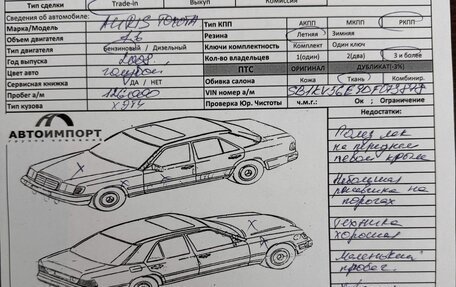 Тип сделки Trade-in Выкуп Комиссия
Сведения об автомобиле:
Марка/Модель AURIS TOYOTA Тип КПП АКПП МКПП РКПП
Объем двигателя 1.6 Резина Летняя Зимняя
Тип двигателя бензиновый / Дизельный Ключи комплектность Комплект Один ключ
Год выпуска 2008 Кол-во владельцев 1(один) 2(два) 3 и более
Цвет авто голубой ПТС ОРИГИНАЛ ДУБЛИКАТ(-3%)
Сервисная книжка ДА / НЕТ Обивка салона Кожа Ткань Комбинир.
Пробег а/м VIN номер а/м
Тип кузова Проверка Юр. Чистоты ч.м.г.: Ок ; Ограничение
АВТОИМПОРТ
группа компаний
Недостатки:
лак
на переднем
левом крыле
Небольшая
на
порогах
Техника
хорошая
Маленький
пробег.